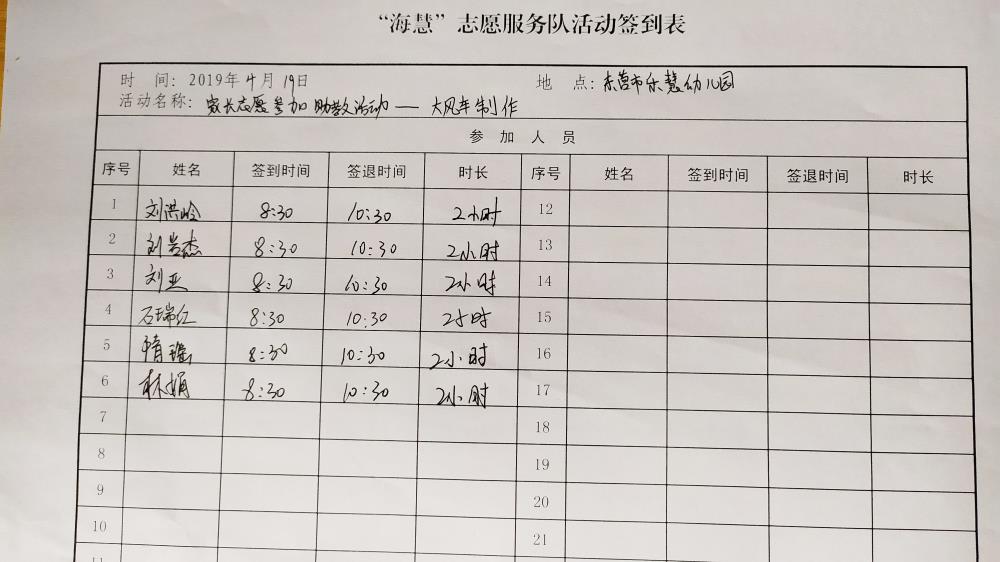 “海慧”志愿服务队活动签到表
时 间：2019年4月19日 地 点：东营市乐慧幼儿园
活动名称：家长志愿参加助教活动——大风车制作
参 加 人 员
序号 姓名 签到时间 签退时间 时长 序号 姓名 签到时间 签退时间 时长
1 刘洪岭 8:30 10:30 2小时 12
2 刘 杰 8:30 10:30 2小时 13
3 刘亚 8:30 10:30 2小时 14
4 石瑞红 8:30 10:30 2小时 15
5 隋瑶 8:30 10:30 2小时 16
6 林娟 8:30 10:30 2小时 17
7 18
8 19
9 20
10 21
11